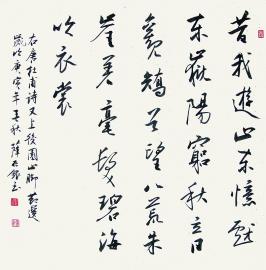 昔我遊山東憶戲
東嶽陽窮秋立日
觀矯首望八荒朱
崖著毫髮碧海
吹衣裳
右唐杜甫詩又上後園山腳節選
歲次庚寅年孟秋薛